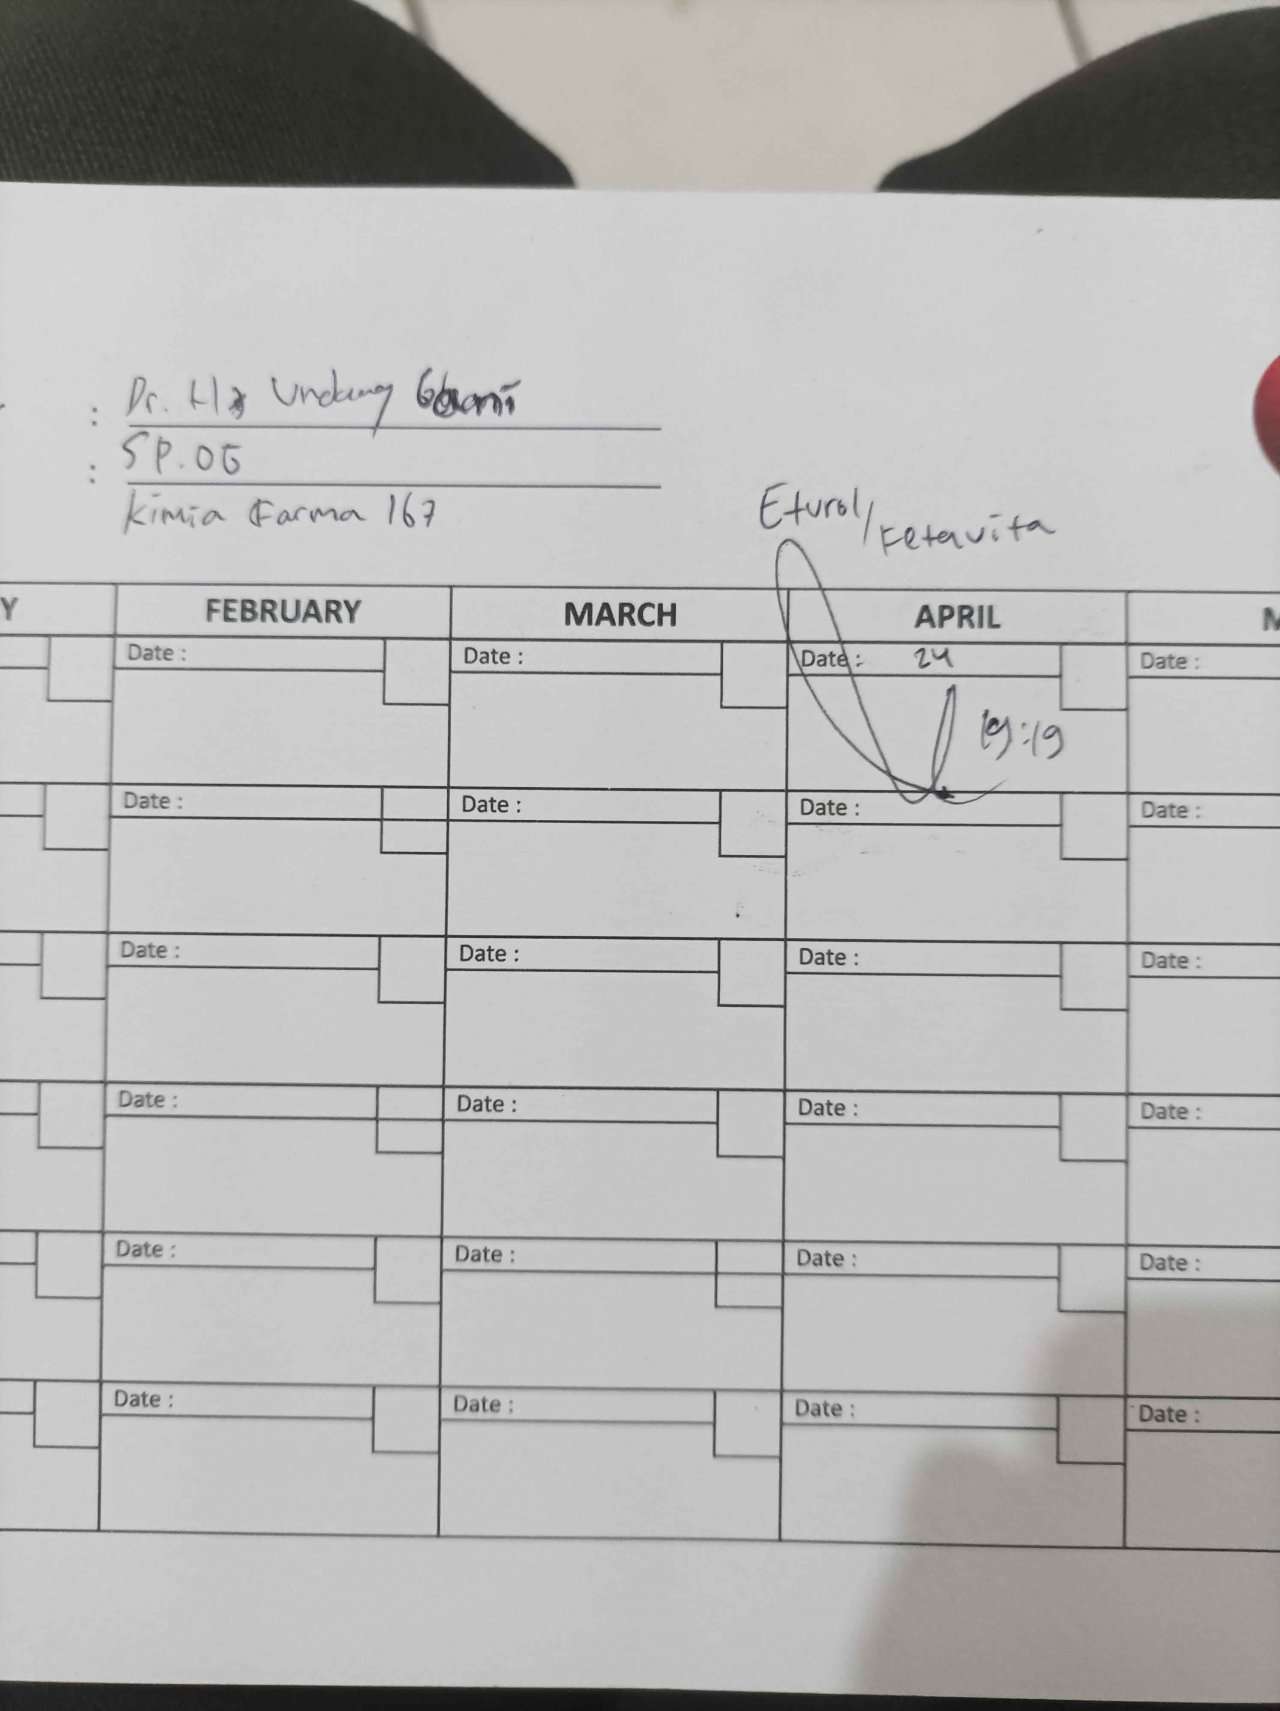 : Dr. H Undang
: SP. OG
Kimia Farma 167
Eturol/Fetavita
Y FEBRUARY MARCH APRIL M
Date : Date : Date : 24 Date :
19:19
Date : Date : Date : Date :
Date : Date : Date : Date :
Date : Date : Date : Date :
Date : Date : Date : Date :
Date : Date : Date : Date :